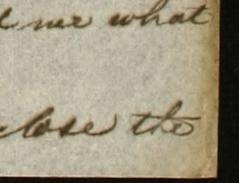 me what
close the